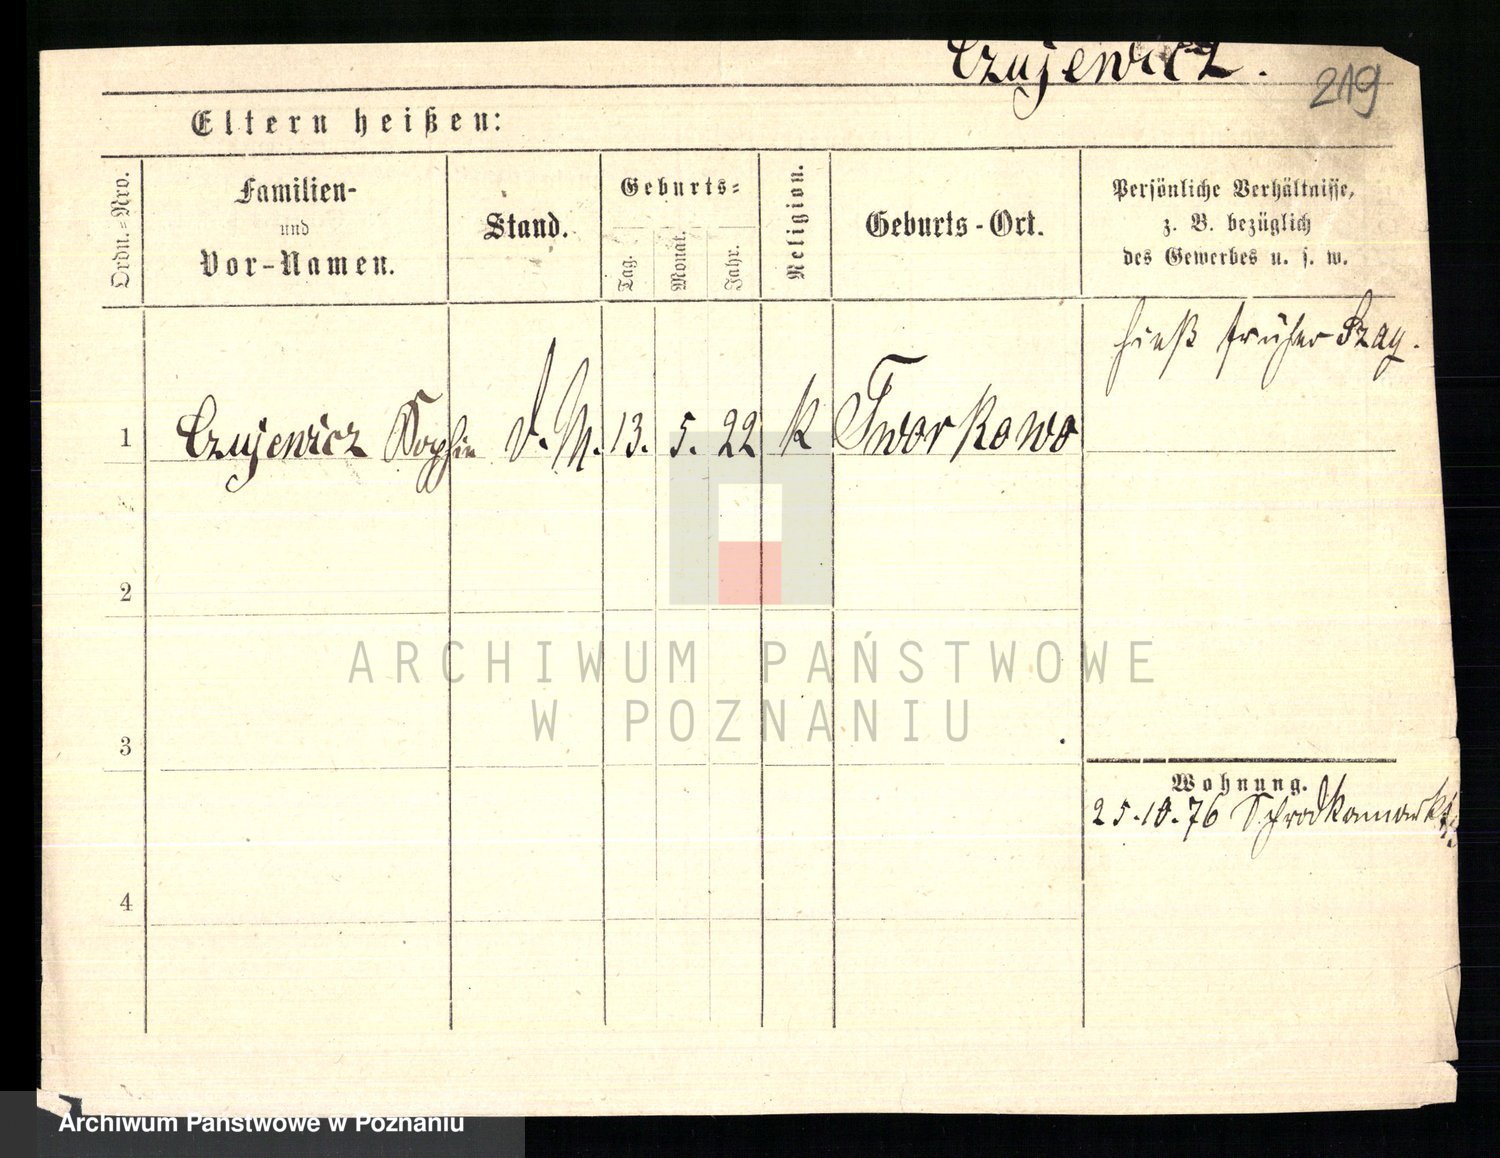 Czujewicz.
219
Eltern heißen:
Ordn.=Nro.
Familien-
und
Vor-Namen.
Stand.
Geburts=
Tag.
Monat.
Jahr.
Religion.
Geburts-Ort.
Persönliche Verhältnisse,
z. B. bezüglich
des Gewerbes u. s. w.
hieß früher Czay.
1 Czujewicz Sophie d. M. 13. 5. 22 k Tworkowo
2
3
4
ARCHIWUM PAŃSTWOWE
W POZNANIU
Wohnung.
25.10.76 Schrodkamarkt
Archiwum Państwowe w Poznaniu